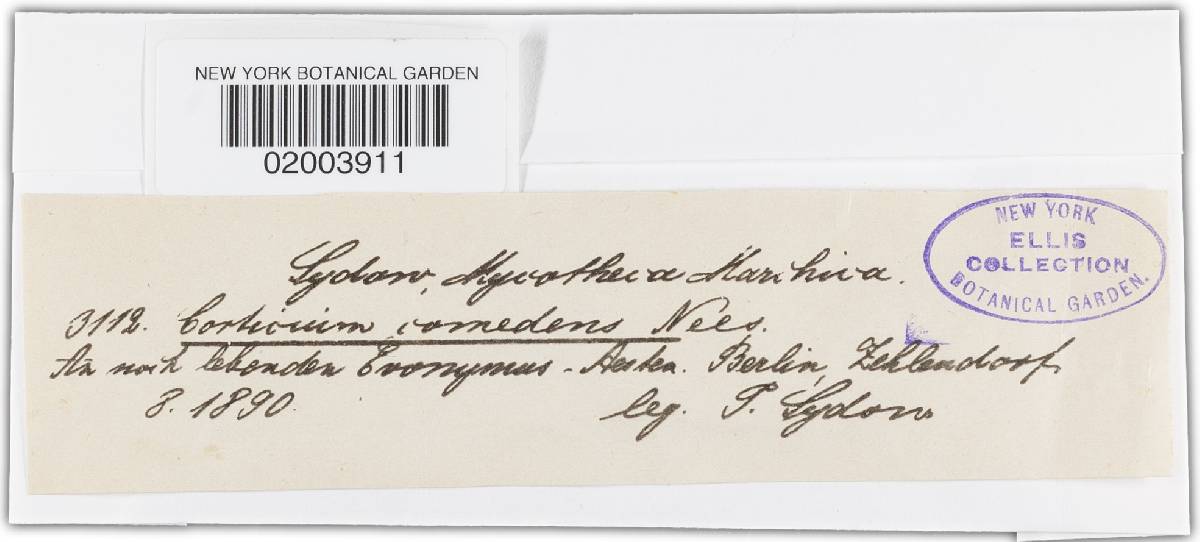 NEW YORK BOTANICAL GARDEN
02003911
NEW YORK
ELLIS
COLLECTION
BOTANICAL GARDEN.
Sydow, Mycotheca Marchica.
3112. Corticium comedens Nees.
An noch lebenden Evonymus-Aesten. Berlin, Zehlendorf
8. 1890. leg. P. Sydow